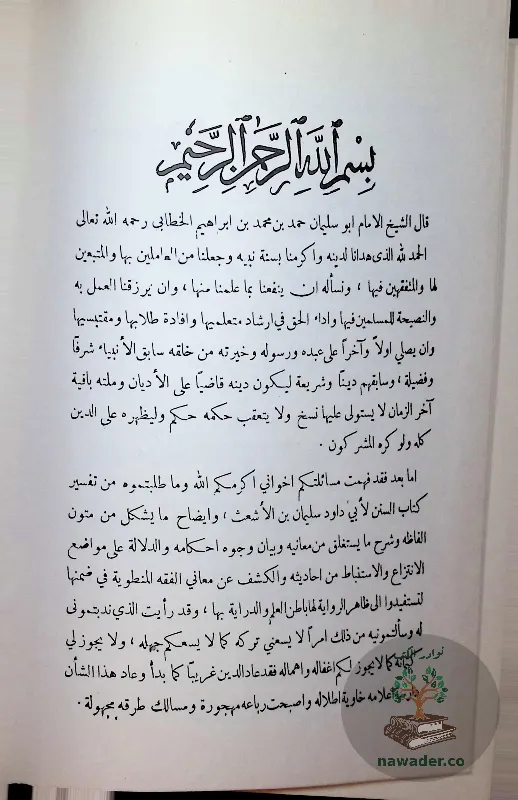 بسم الله الرحمن الرحيم
قال الشيخ الامام ابو سليمان حمد بن محمد بن ابراهيم الخطابي رحمه الله تعالى
الحمد لله الذى هدانا لدينه واكرمنا بسنة نبيه وجعلنا من العاملين بها والمتبعين
لها والمتفقهين فيها ، ونسأله ان ينفعنا بما علمنا منها ، وان يرزقنا العمل به
والنصيحة للمسلمين فيها واداء الحق في ارشاد متعلميها وافادة طلابها ومقتبسيها
وان يصلي اولاً وآخراً على عبده ورسوله وخيرته من خلقه سابق الأنبياء شرفًا
وفضيلة ، وسابقهم دينًا وشريعة ليكون دينه قاضيًا على الأديان وملته باقية
آخر الزمان لا يستولى عليها نسخ ولا يتعقب حكمه حكم وليظهره على الدين
كله ولو كره المشركون .
اما بعد فقد فهمت مسائلتكم اخواني اكرمكم الله وما طلبتموه من تفسير
كتاب السنن لأبي داود سليمان بن الأشعث ، وايضاح ما يشكل من متون
الفاظه وشرح ما يستغلق من معانيه وبيان وجوه احكامه والدلالة على مواضع
الانتزاع والاستنباط من احاديثه والكشف عن معاني الفقه المنطوية في ضمنها
لتستفيدوا الى ظاهر الرواية لها باطن العلم والدراية بها ، وقد رأيت الذي ندبتمونى
له وسألتمونيه من ذلك امراً لا يسعني تركه كما لا يسعكم جهله ، ولا يجوز لي
كتمانه كما لا يجوز لكم اغفاله واهماله فقد عاد الدين غريبًا كما بدأ وعاد هذا الشأن
دارسة اعلامه خاوية اطلاله واصبحت رباعه مهجورة ومسالك طرقه مجهولة .
نوادر الكتب
nawader.co